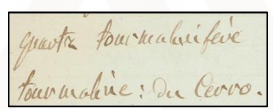 quartz tourmalinifère
tourmaline : du Cerro.